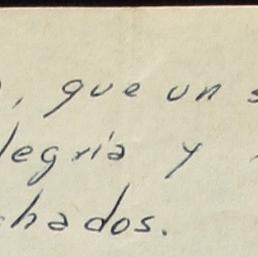 , que un s
legría y
chados.